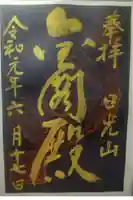 奉拝 日光山
宝閣殿
令和元年六月十七日